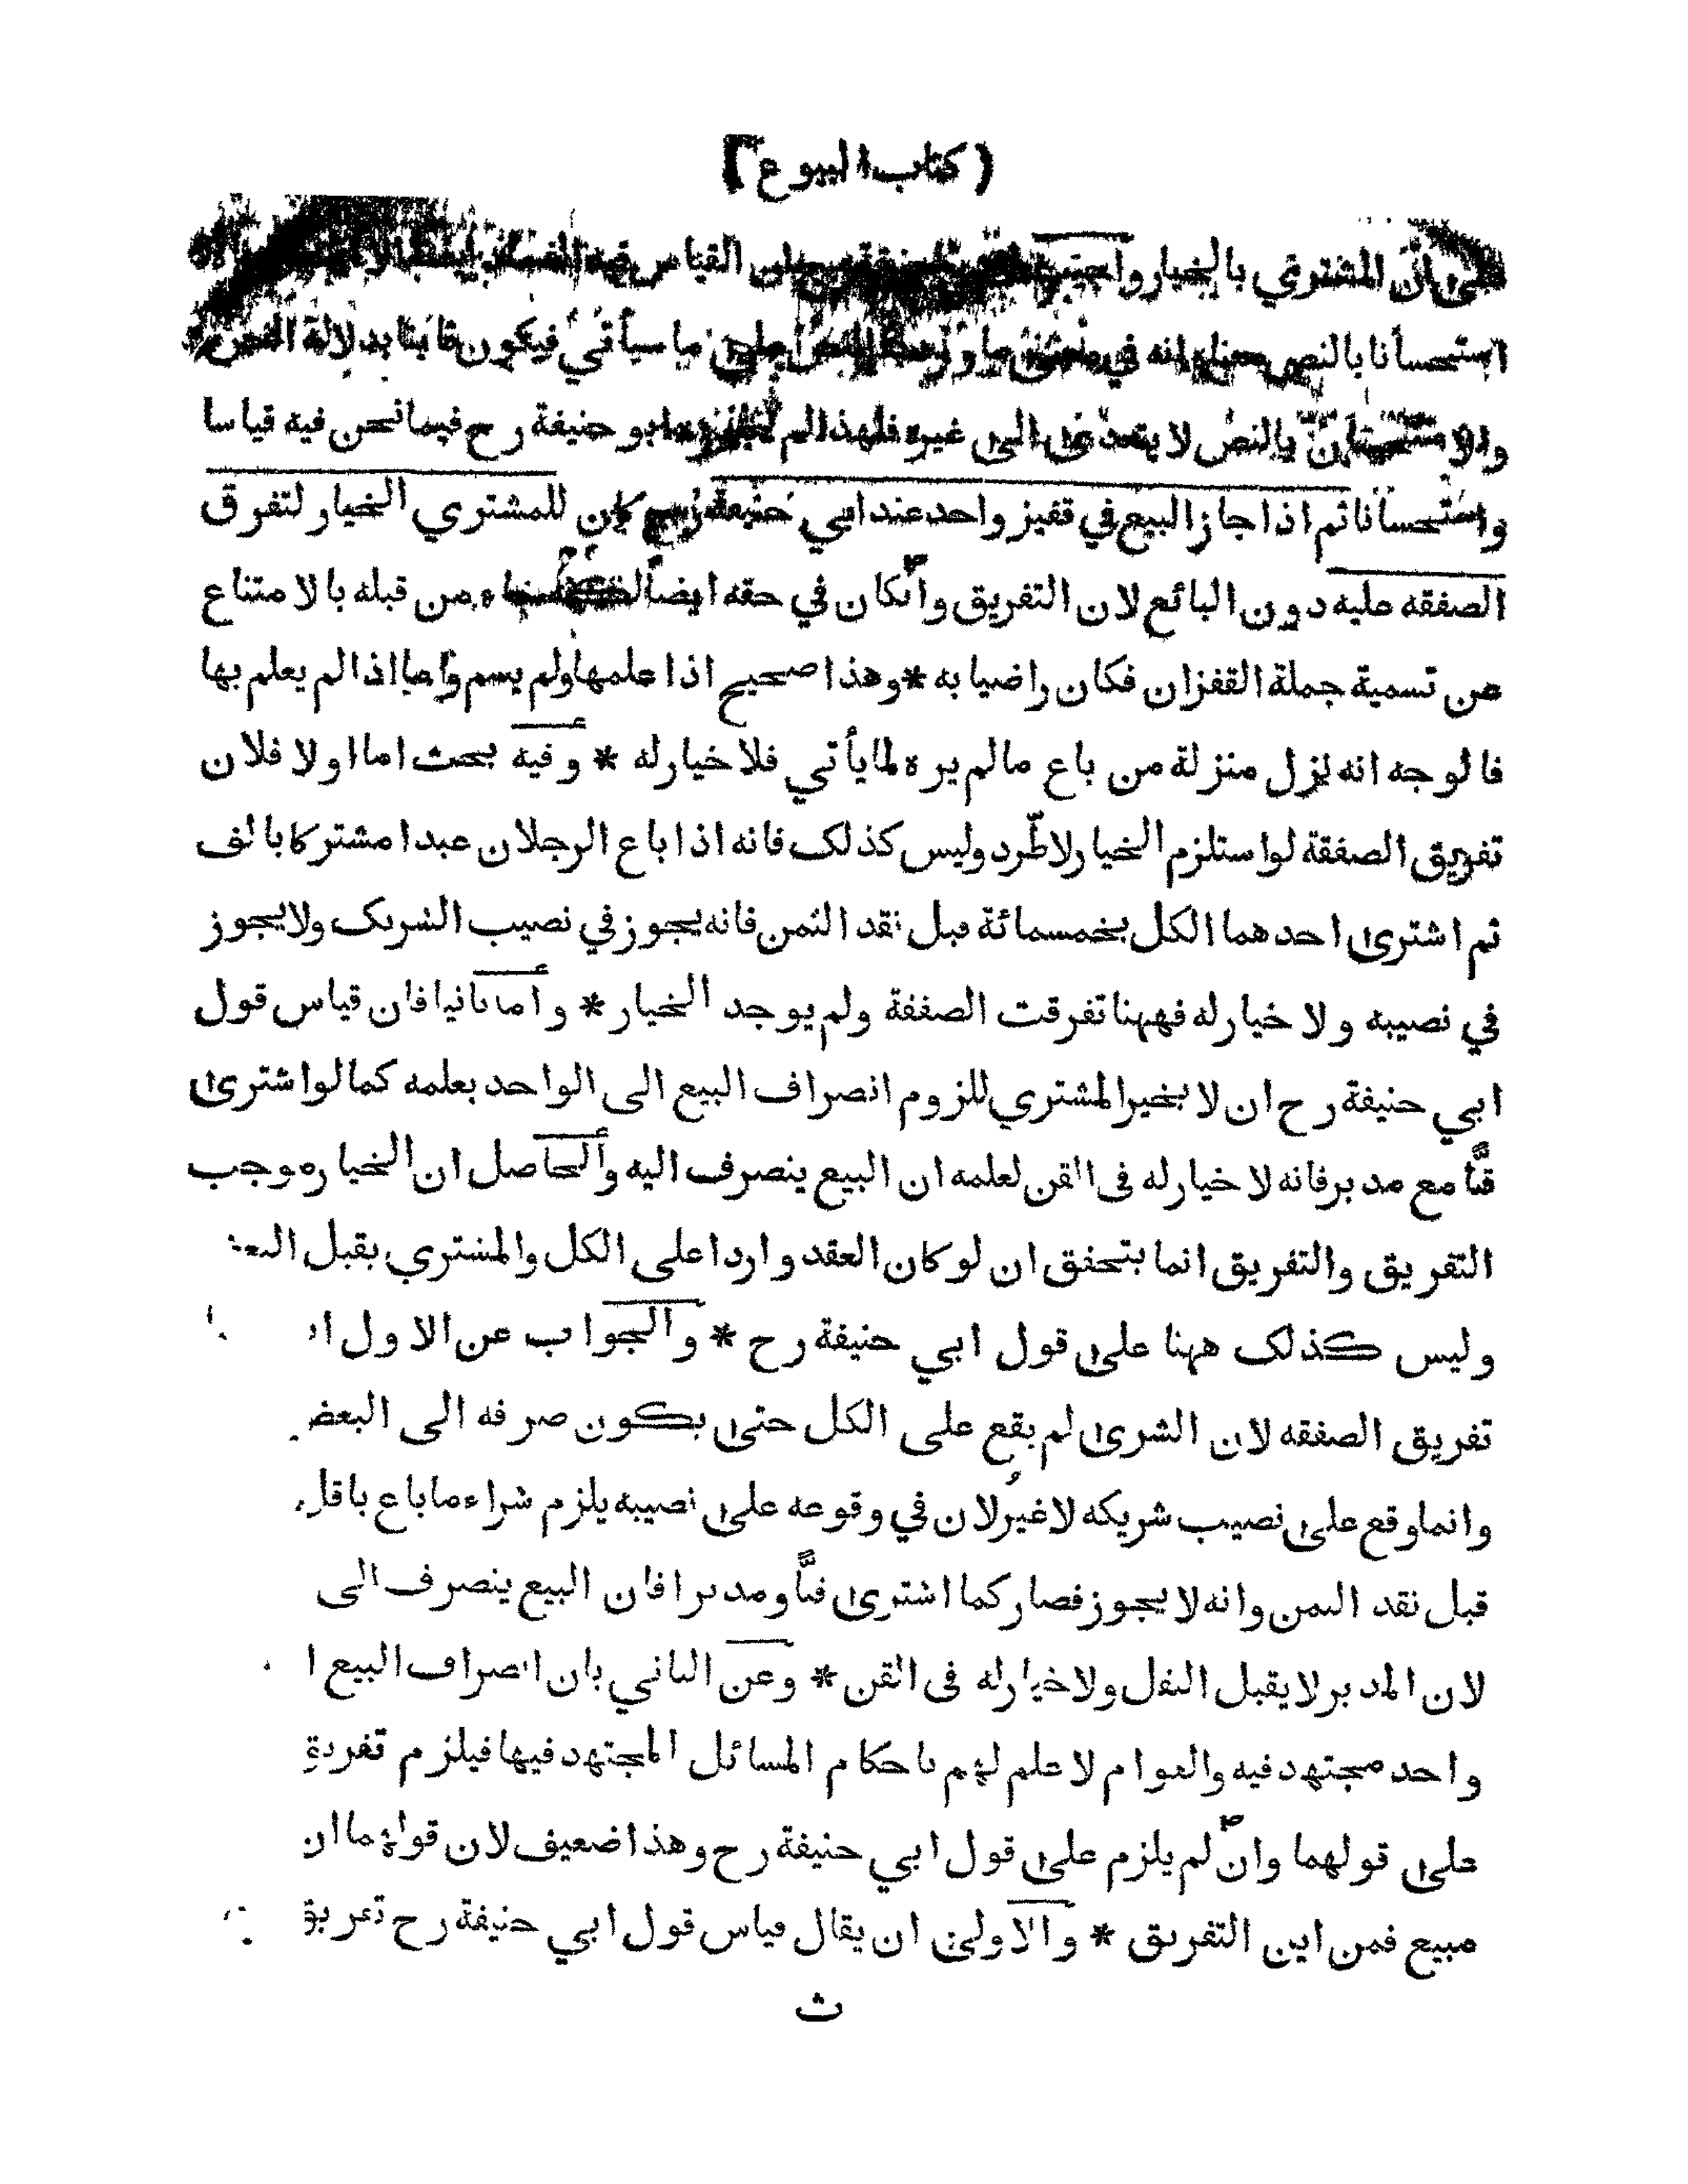 ( كتاب البيوع )
على ان المشتري بالخيار واجيب القياس فيه الفساد ايضا الا
استحسانا بالنص انه في ما سيأتي فيكون ثابتا بدلالة النص
بالنص لا يتعدى الى غيره فلهذا لم ابو حنيفة رح فيما نحن فيه قياسا
واستحسانا ثم اذا جاز البيع في قفيز واحد عند ابي حنيفة رح كان للمشتري الخيار لتفرق
الصفقه عليه دون البائع لان التفريق وان كان في حقه ايضا من قبله بالامتناع
عن تسمية جملة القفزان فكان راضيا به * وهذا صحيح اذا علمها ولم يسم واما اذا لم يعلم بها
فالوجه انه نزل منزلة من باع مالم يره لما يأتي فلا خيار له * وفيه بحث اما اولا فلان
تفريق الصفقة لو استلزم الخيار لاطّرد وليس كذلک فانه اذا باع الرجلان عبدا مشتركا بالف
ثم اشترى احدهما الكل بخمسمائة قبل نقد الثمن فانه يجوز في نصيب الشريک ولا يجوز
في نصيبه ولا خيار له فههنا تفرقت الصفقة ولم يوجد الخيار * وأما ثانيا فان قياس قول
ابي حنيفة رح ان لا يخير المشتري للزوم انصراف البيع الى الواحد بعلمه كما لو اشترى
قنًّا مع مدبر فانه لا خيار له فى القن لعلمه ان البيع ينصرف اليه والحاصل ان الخيار موجب
التفريق والتفريق انما يتحقق ان لو كان العقد واردا على الكل والمشتري يقبل
وليس كذلک ههنا على قول ابي حنيفة رح * والجواب عن الاول
تفريق الصفقه لان الشرى لم يقع على الكل حتى يكون صرفه الى البعض
وانما وقع على نصيب شريكه لا غيرُ لان في وقوعه على نصيبه يلزم شراء ما باع باقل
قبل نقد الثمن وانه لا يجوز فصار كما اشترى قنًّا ومدبرا فان البيع ينصرف الى
لان المدبر لا يقبل النقل ولا خيار له فى القن * وعن الثاني بان انصراف البيع
واحد مجتهد فيه والعوام لا علم لهم باحكام المسائل المجتهد فيها فيلزم تفريق
على قولهما وان لم يلزم على قول ابي حنيفة رح وهذا ضعيف لان قولهما ان
مبيع فمن اين التفريق * والاولى ان يقال قياس قول ابي حنيفة رح تفريق
ث